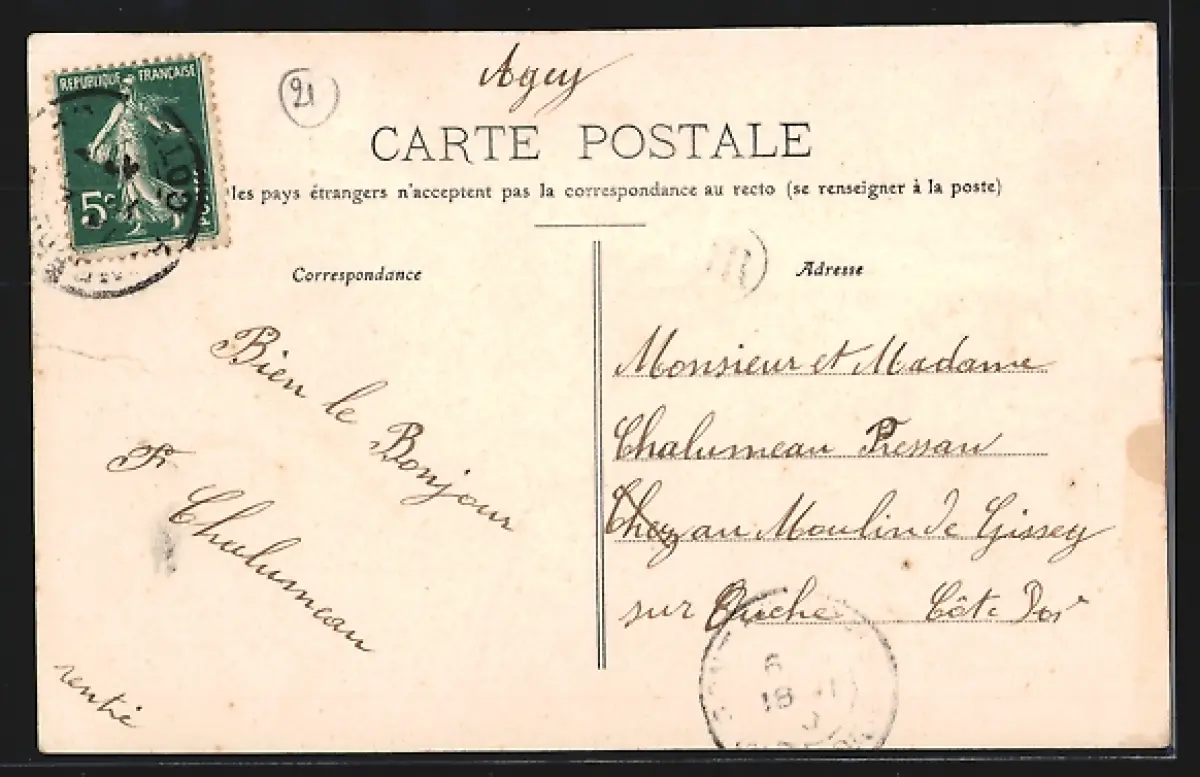 Agey
21
REPUBLIQUE FRANÇAISE
5c
POSTES
CARTE POSTALE
les pays étrangers n'acceptent pas la correspondance au recto (se renseigner à la poste)
Correspondance
Bien le Bonjour
Fr Chalumeau
rentié
Adresse
Monsieur et Madame
Chalumeau Pressau
Chez au Moulin de Gissey
sur Ouche Côte Dor
6
18